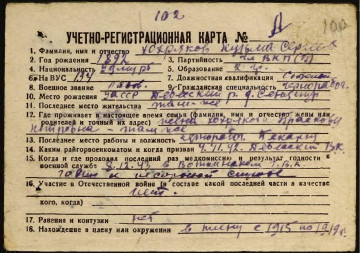 102
УЧЕТНО-РЕГИСТРАЦИОННАЯ КАРТА №
1. Фамилия, имя и отчество Хохряков Кузьма
2. Год рождения 1892 3. Партийность чл. ВКП(б)
4. Национальность удмурт 5. Образование 2 кл.
6. На ВУС 134 7. Должностная квалификация
8. Военное звание 9. Гражданская специальность
10. Место рождения УАССР Дебесский р.
11. Последнее место жительства там-же
12. Где проживает в настоящее время семья (фамилия, имя и отчество жены или
родителей и точный их адрес) жена Хохрякова
Петровна - там-же
13. Последнее место работы и должность
14. Каким РВК призван 4.11.42. Дебесский РВК
15. Когда и где проходил последний раз медкомиссию и результат годности к
военной службе 8.12.43 в Воткинском Г.В.К.
годен к нестроевой службе
16. Участие в Отечественной войне (в составе какой последней части в качестве
кого, когда) нет.
17. Ранения и контузии нет
18. Нахождение в плену или окружении в плену с 1915 по 1919 г.